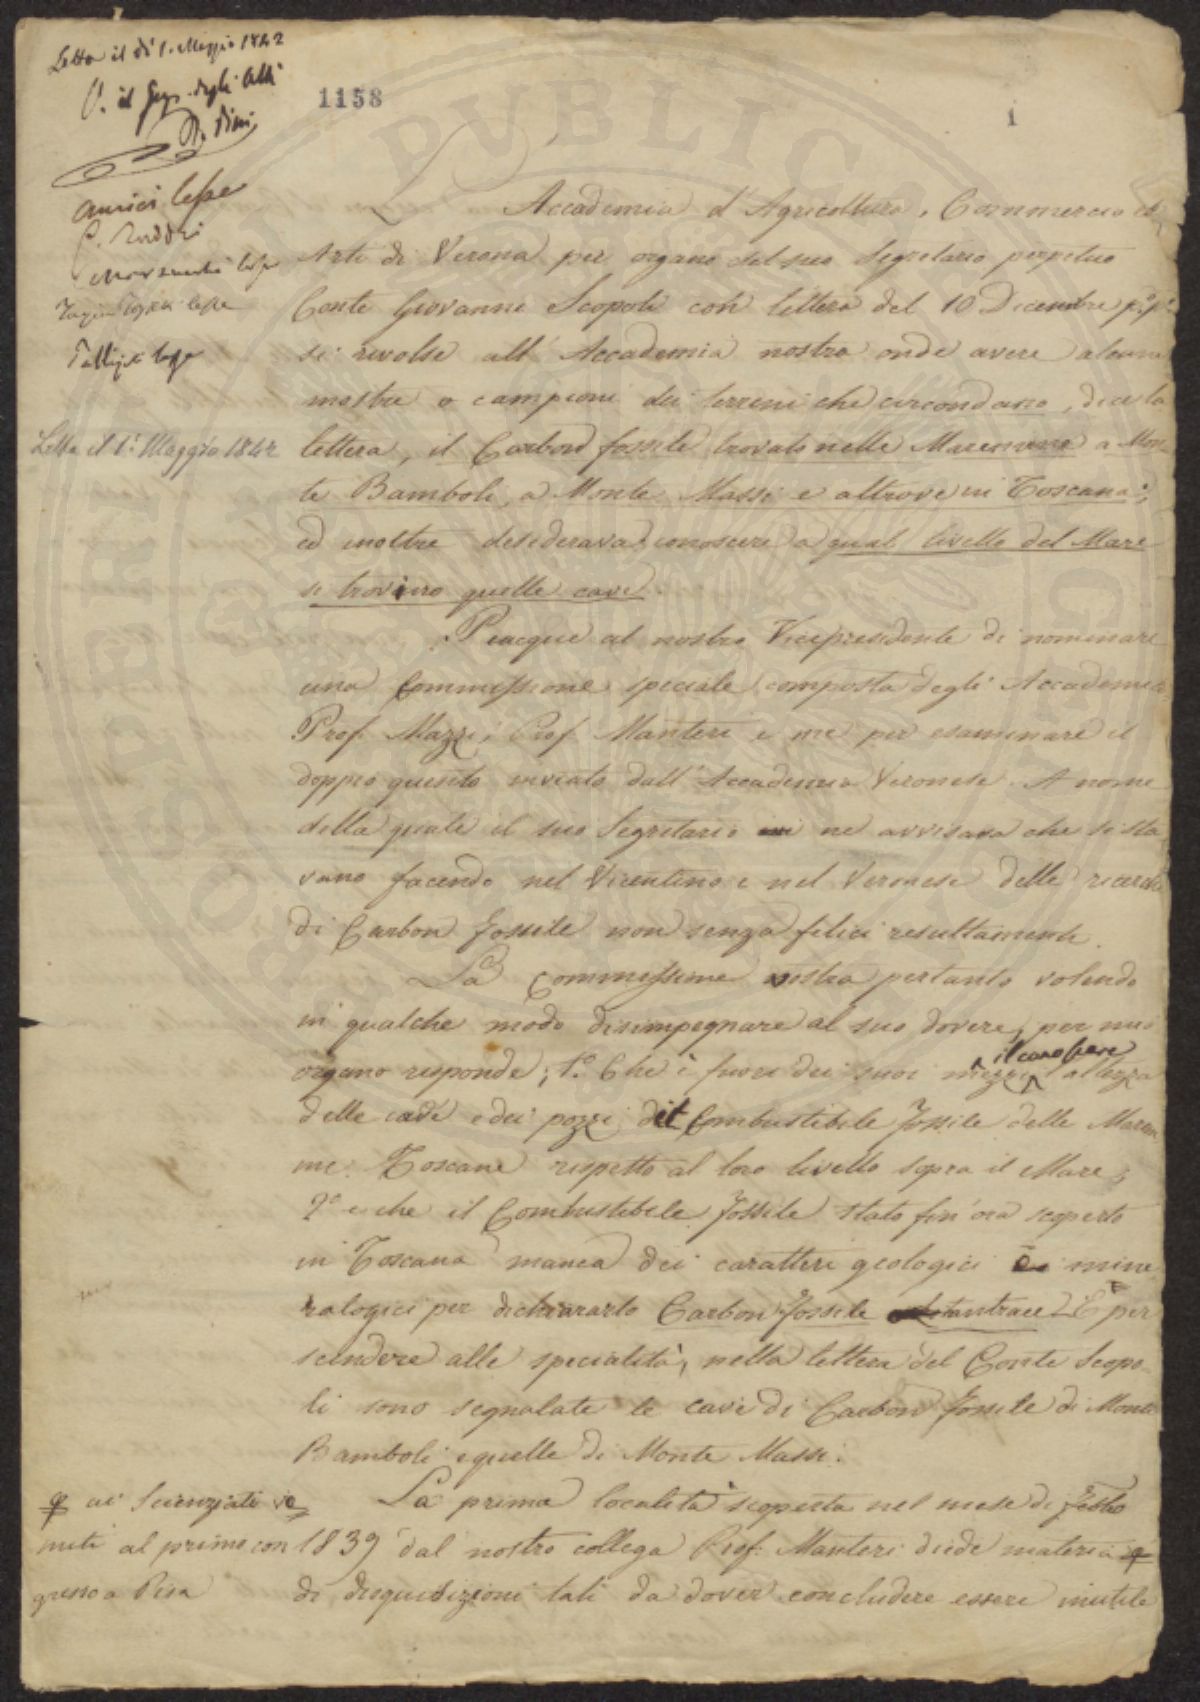 Letta il dì 1. Maggio 1842
V. il Seg. degli Atti
1158
1
Amici lesse
C. Taddei
lesse
lesse
lesse
L'Accademia d'Agricoltura, Commercio ed
Arti di Verona per organo del suo Segretario perpetuo
Conte Giovanni Scopoli con lettera del 10 Dicembre p.º p.º
si rivolse all'Accademia nostra onde avere alcune
mostre o campioni dei terreni che circondano, dice la
Letta il 1º Maggio 1842
lettera, il Carbon fossile trovato nelle Maremme a Mon-
te Bamboli, a Monte Massi e altrove in Toscana;
ed inoltre desiderava conoscere a qual livello del Mare
si trovino quelle cave.
Piacque al nostro Vicepresidente di nominare
una Commissione speciale composta degli Accademici
Prof. Mazzi, Prof. Manteri e me per esaminare il
doppio quesito inviato dall'Accademia Veronese. A nome
della quale il suo Segretario ne avvisava che si sta
vano facendo nel Vicentino e nel Veronese delle ricerche
di Carbon fossile non senza felici resultamenti.
La Commissione vostra pertanto volendo
in qualche modo disimpegnare al suo dovere, per mio
organo risponde; 1.º Che è fuori dei suoi mezzi il conoscere altezza
delle cave e dei pozzi del Combustibile fossile delle Marem
me Toscane rispetto al loro livello sopra il Mare;
2º e che il Combustibile fossile stato fin'ora scoperto
in Toscana manca dei caratteri geologici e mine
ralogici per dichiararlo Carbon fossile E per
scendere alle specialità, nella lettera del Conte Scopo-
li sono segnalate le cave di Carbon fossile di Monte
Bamboli e quelle di Monte Massi.
La prima località scoperta nel mese di Febb.o
1839 dal nostro collega Prof. Manteri diede materia
di disquisizioni tali da dover concludere essere inutile
ai Scienziati ve
nuti al primo con
gresso a Pisa